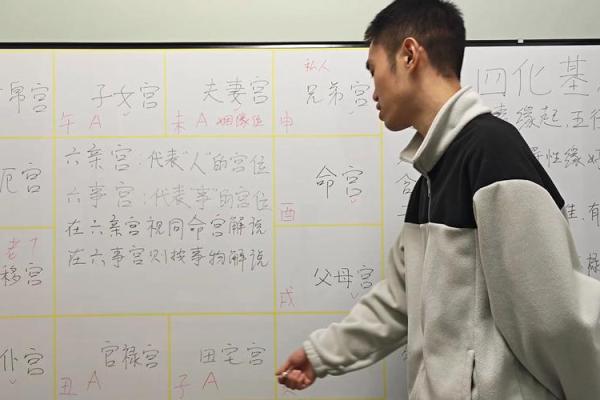 帛宫
子女宫
午 A
夫妻宫
未 A 姻缘位
私人
兄弟宫
申
四化基
厄宫
六亲宫:代表“人”的宫位
六事宫:代表“事”的宫位
在六亲宫视同命宫解说
在六事宫则按事物解说
命宫
酉
缘起,五行
性缘好
老?
移宫
父母宫
戌
仆宫
官禄宫
丑 A
田宅宫
子 A